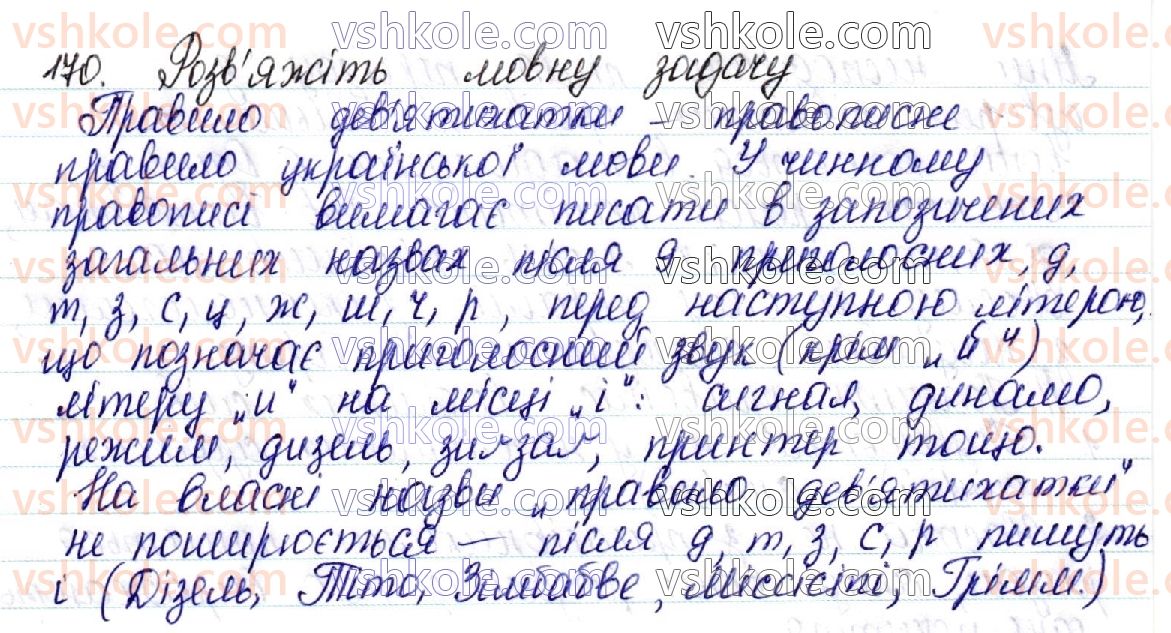 170. Розв'яжіть мовну задачу
Правило дев'ятихатки – правописне
правило української мови. У чинному
правописі вимагає писати в запозичених
загальних назвах після 9 приголосних, д,
т, з, с, ц, ж, ш, ч, р, перед наступною літерою,
що позначає приголосний звук (крім „й")
літеру „и" на місці „і": сигнал, динамо,
режим, дизель, зигзаг, принтер тощо.
На власні назви „правило дев'ятихатки"
не поширюється – після д, т, з, с, р пишуть
і (Дізель, Тіто, Зімбабве, Міссісіпі, Грімм.)
vshkole.com